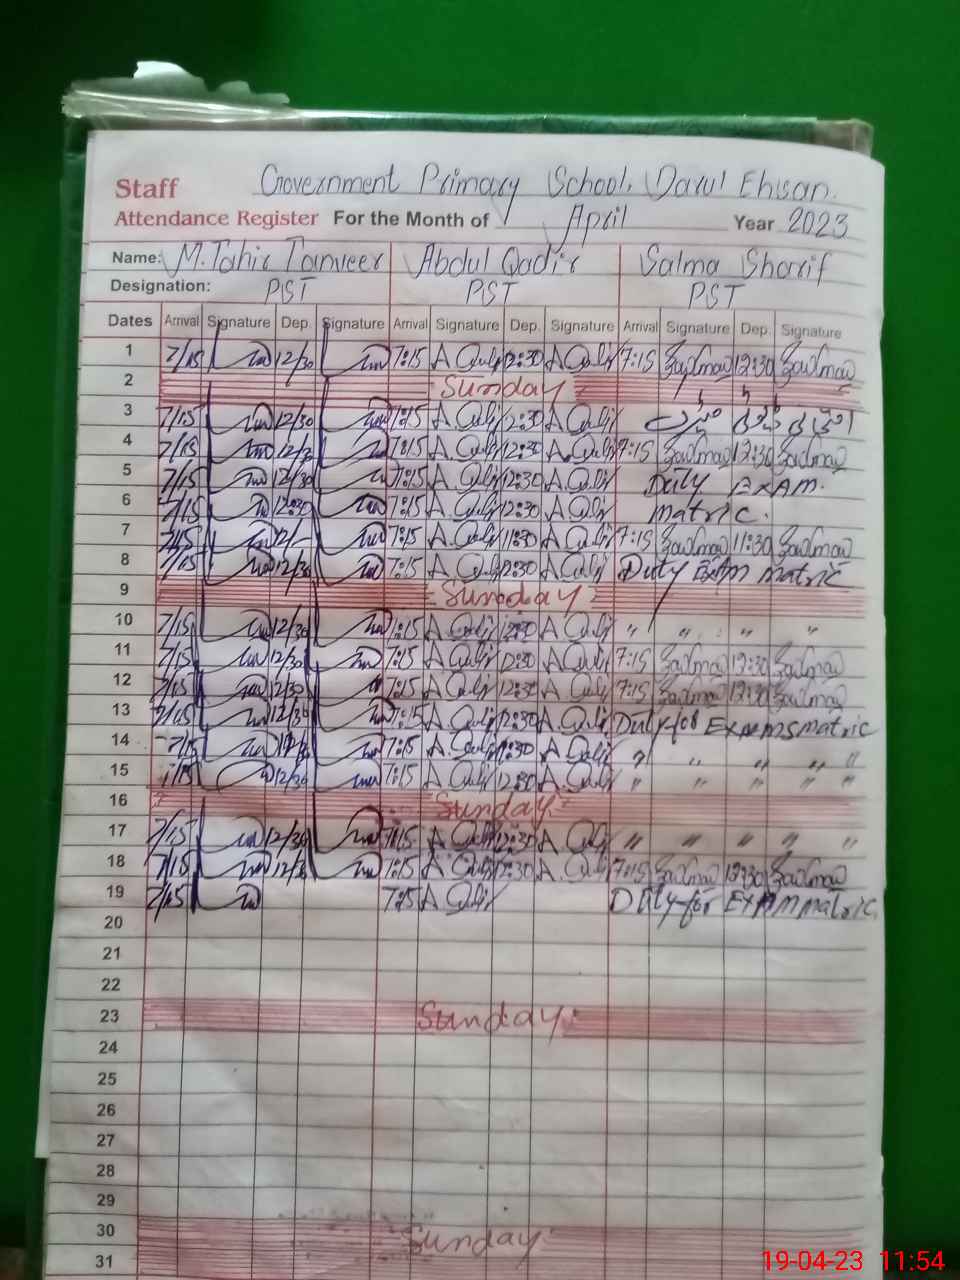 Staff Government Primary School, Darul Ehsan.
Attendance Register For the Month of April Year 2023
Name: M. Tahir Tanveer Abdul Qadir Salma Sharif
Designation: PST PST PST
Dates Arrival Signature Dep. Signature Arrival Signature Dep. Signature Arrival Signature Dep. Signature
1 7/15 12/30 7:15 A Qadir 12:30 A Qadir 7:15 Salma 12:30 Salma
2 Sunday
3 7/15 12/30 7:15 A Qadir 12:30 A Qadir
4 7/15 12/30 7:15 A Qadir 12:30 A Qadir 7:15 Salma 12:30 Salma
5 7/15 12/30 7:15 A Qadir 12:30 A Qadir Duty EXAM.
6 7/15 12:30 7:15 A Qadir 12:30 A Qadir matric.
7 7/15 12/- 7:15 A Qadir 11:30 A Qadir 7:15 Salma 11:30 Salma
8 7/15 12/30 7:15 A Qadir 12:30 A Qadir Duty Exam matric
9 Sunday
10 7/15 12/30 7:15 A Qadir 12:30 A Qadir " " " "
11 7/15 12/30 7:15 A Qadir 12:30 A Qadir 7:15 Salma 12:30 Salma
12 7/15 12/30 7:15 A Qadir 12:30 A Qadir 7:15 Salma 12:30 Salma
13 7/15 12/30 7:15 A Qadir 12:30 A Qadir Duty for Exams matric
14 7/15 7:15 A Qadir A Qadir " " " "
15 7/15 12/30 7:15 A Qadir 12:30 A Qadir " " " "
16 Sunday
17 7/15 12/30 7:15 A Qadir 12:30 A Qadir " " " "
18 7/15 12/30 7:15 A Qadir 12:30 A Qadir 7:15 Salma 12:30 Salma
19 7/15 7:15 A Qadir Duty for Exam matric.
20
21
22
23 Sunday
24
25
26
27
28
29
30 Sunday
31
19-04-23 11:54